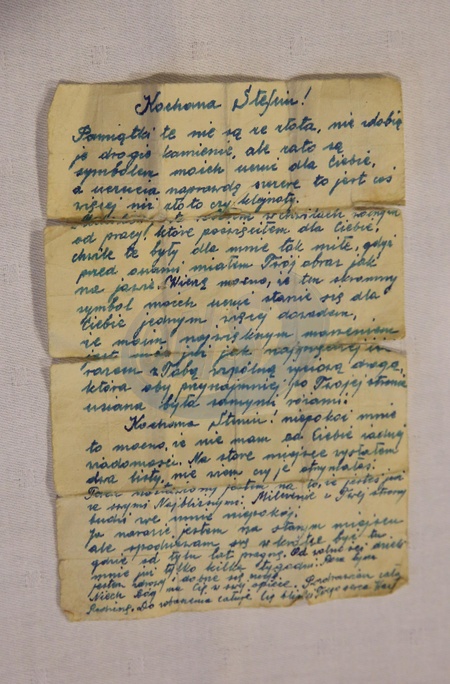 Kochana Stefciu!
Pamiątki te nie są ze złota, nie zdobią
je drogie kamienie, ale zato są
symbolem moich uczuć dla Ciebie,
a uczucia naprawdę szczere to jest coś
więcej niż złoto czy klejnoty.
w chwilach wolnych
od pracy, które poświęciłem dla Ciebie,
chwile te były dla mnie tak miłe, gdyż
przed oczami miałem Twój obraz jak
na jawie. Wierzę mocno, że ten skromny
symbol moich uczuć stanie się dla
Ciebie jednym więcej dowodem,
że moim największym marzeniem
jest jak najprędzej iść
razem z Tobą wspólną życiową drogą,
która oby przynajmniej po Twojej stronie
usiana była samymi różami.
Kochana Stefciu! niepokoi mnie
to mocno, że nie mam od Ciebie żadnej
wiadomości. Na stare miejsce wysłałem
dwa listy, nie wiem czy je otrzymałaś.
jestem na to, że jesteś już
ze swymi Najbliższymi. Milczenie z Twej strony
budzi we mnie niepokój.
Ja narazie jestem na starym miejscu
ale spodziewam się wkrótce być tu
gdzie od tylu lat pragnę. Od wolności dzieli
mnie już tylko kilka tygodni. Poza tym
jestem zdrowy i dobrze się czuję.
Niech Bóg ma Cię w swej opiece. Pozdrawiam całą
Rodzinę. Do zobaczenia całuję Cię